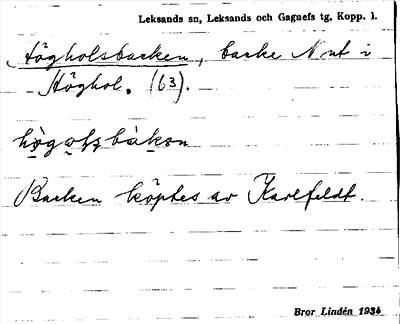 Leksands sn, Leksands och Gagnefs tg, Kopp. l.
Högholsbacken, backe N ut i
Höghol. (63).
hògolsbàkən
Backen köptes av Karlfeldt.
Bror Lindén 1934